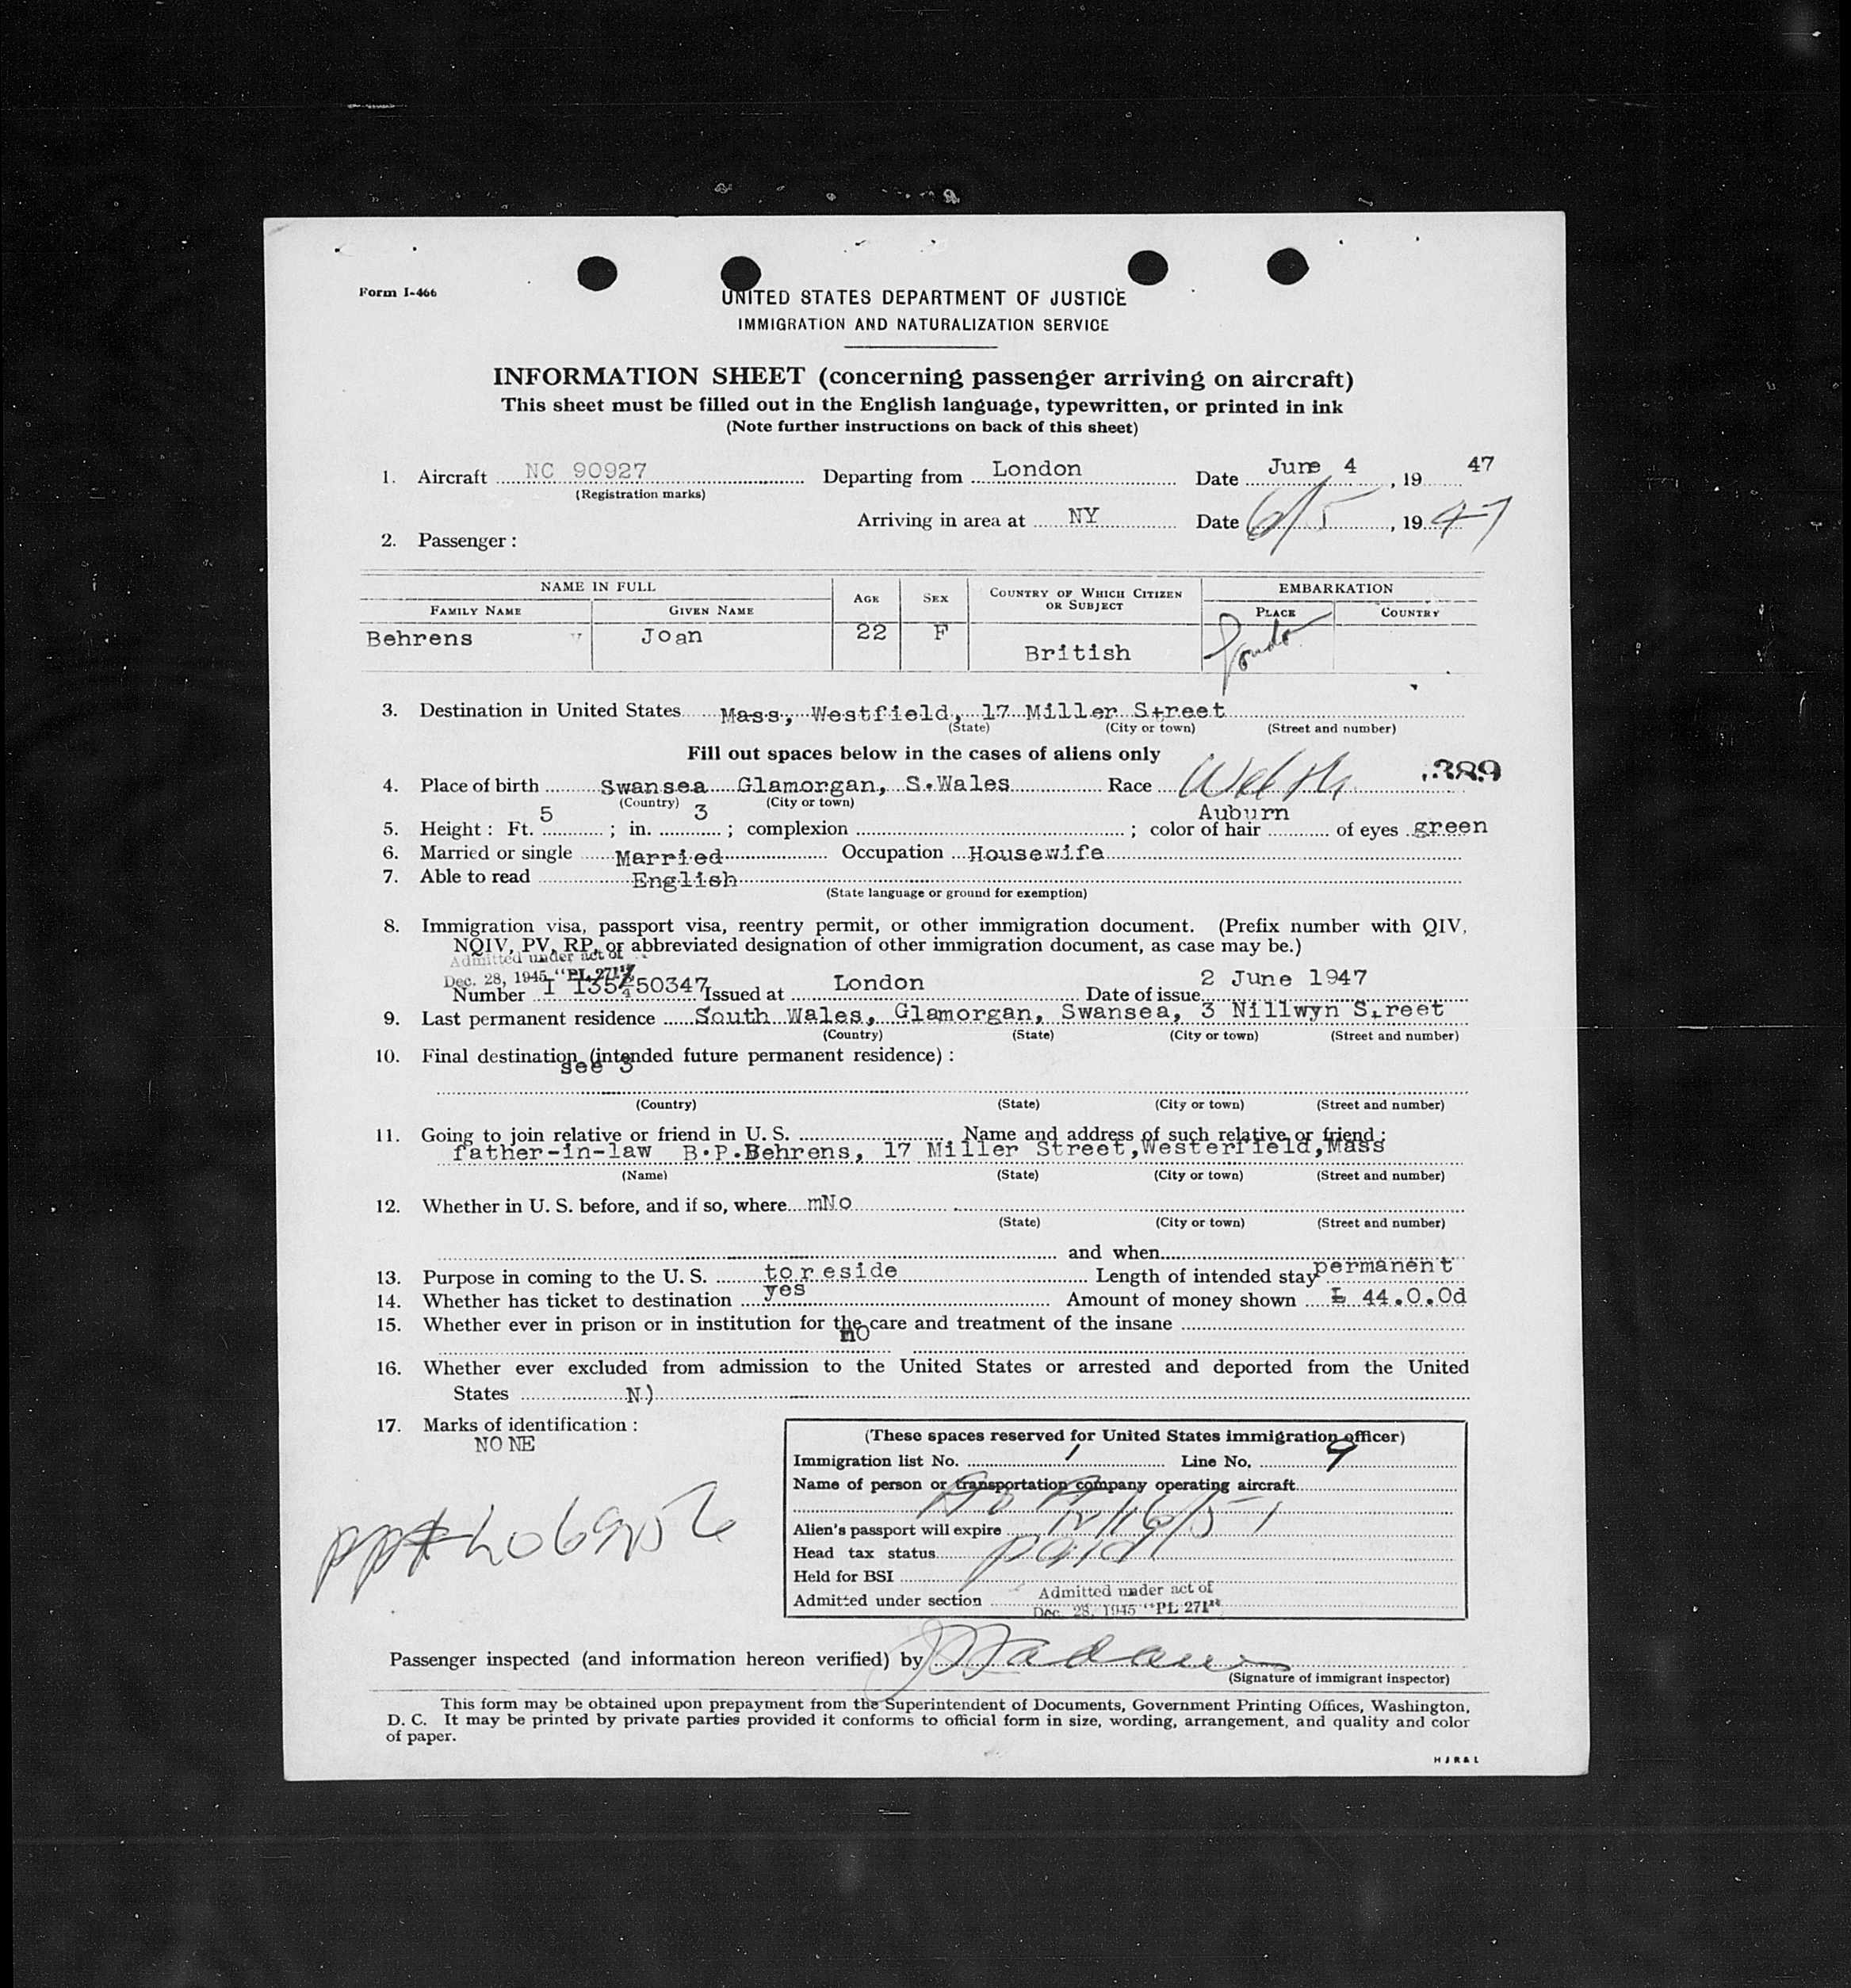 Form I-466
UNITED STATES DEPARTMENT OF JUSTICE
IMMIGRATION AND NATURALIZATION SERVICE
INFORMATION SHEET (concerning passenger arriving on aircraft)
This sheet must be filled out in the English language, typewritten, or printed in ink
(Note further instructions on back of this sheet)
1. Aircraft NC 90927 Departing from London Date June 4, 19 47
(Registration marks)
Arriving in area at NY Date 6/5, 19 47
2. Passenger:
NAME IN FULL AGE SEX COUNTRY OF WHICH CITIZEN OR SUBJECT EMBARKATION
FAMILY NAME GIVEN NAME PLACE COUNTRY
Behrens Joan 22 F British London
3. Destination in United States Mass, Westfield, 17 Miller Street
(State) (City or town) (Street and number)
Fill out spaces below in the cases of aliens only
4. Place of birth Swansea Glamorgan, S.Wales Race Welsh .389
(Country) (City or town)
5. Height: Ft. 5; in. 3; complexion; color of hair Auburn of eyes green
6. Married or single Married Occupation Housewife
7. Able to read English
(State language or ground for exemption)
8. Immigration visa, passport visa, reentry permit, or other immigration document. (Prefix number with QIV,
NQIV, PV, RP, or abbreviated designation of other immigration document, as case may be.)
Admitted under act of
Dec. 28, 1945 "PL 271"
Number I 50347 Issued at London Date of issue 2 June 1947
9. Last permanent residence South Wales, Glamorgan, Swansea, 3 Nillwyn S.reet
(Country) (State) (City or town) (Street and number)
10. Final destination (intended future permanent residence):
see 3
(Country) (State) (City or town) (Street and number)
11. Going to join relative or friend in U. S. Name and address of such relative or friend:
father-in-law B.P.Behrens, 17 Miller Street,Westerfield,Mass
(Name) (State) (City or town) (Street and number)
12. Whether in U. S. before, and if so, where mNo
(State) (City or town) (Street and number)
and when
13. Purpose in coming to the U. S. to reside Length of intended stay permanent
14. Whether has ticket to destination yes Amount of money shown £ 44.0.0d
15. Whether ever in prison or in institution for the care and treatment of the insane
no
16. Whether ever excluded from admission to the United States or arrested and deported from the United
States N)
17. Marks of identification:
NONE
(These spaces reserved for United States immigration officer)
Immigration list No. 1 Line No. 9
Name of person or transportation company operating aircraft
Alien's passport will expire 12/16/51
Head tax status paid
Held for BSI
Admitted under section Admitted under act of
Dec. 28, 1945 "PL 271"
Passenger inspected (and information hereon verified) by
(Signature of immigrant inspector)
This form may be obtained upon prepayment from the Superintendent of Documents, Government Printing Offices, Washington,
D. C. It may be printed by private parties provided it conforms to official form in size, wording, arrangement, and quality and color
of paper.
HJR&L